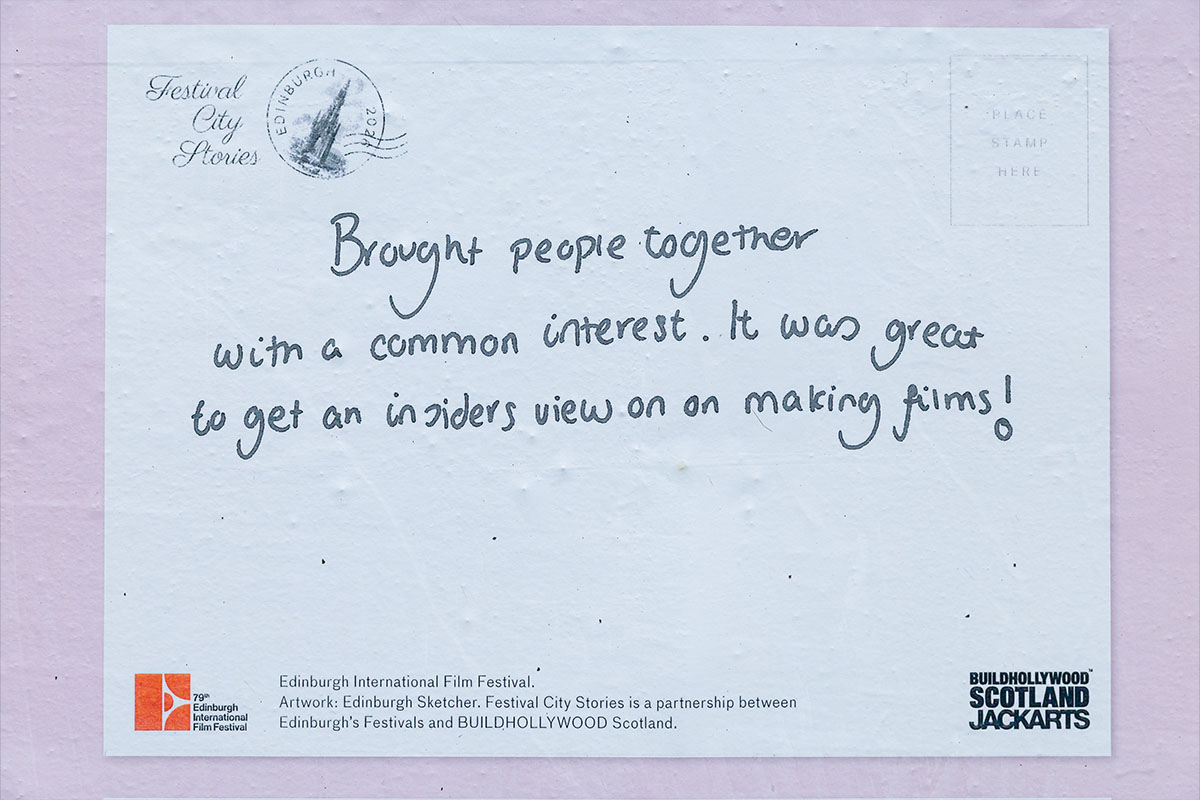 Festival
City
Stories
EDINBURGH
PLACE
STAMP
HERE
Brought people together
with a common interest. It was great
to get an insiders view on on making films!
79th
Edinburgh
International
Film Festival
Edinburgh International Film Festival.
Artwork: Edinburgh Sketcher. Festival City Stories is a partnership between
Edinburgh's Festivals and BUILDHOLLYWOOD Scotland.
BUILDHOLLYWOOD™
SCOTLAND
JACKARTS